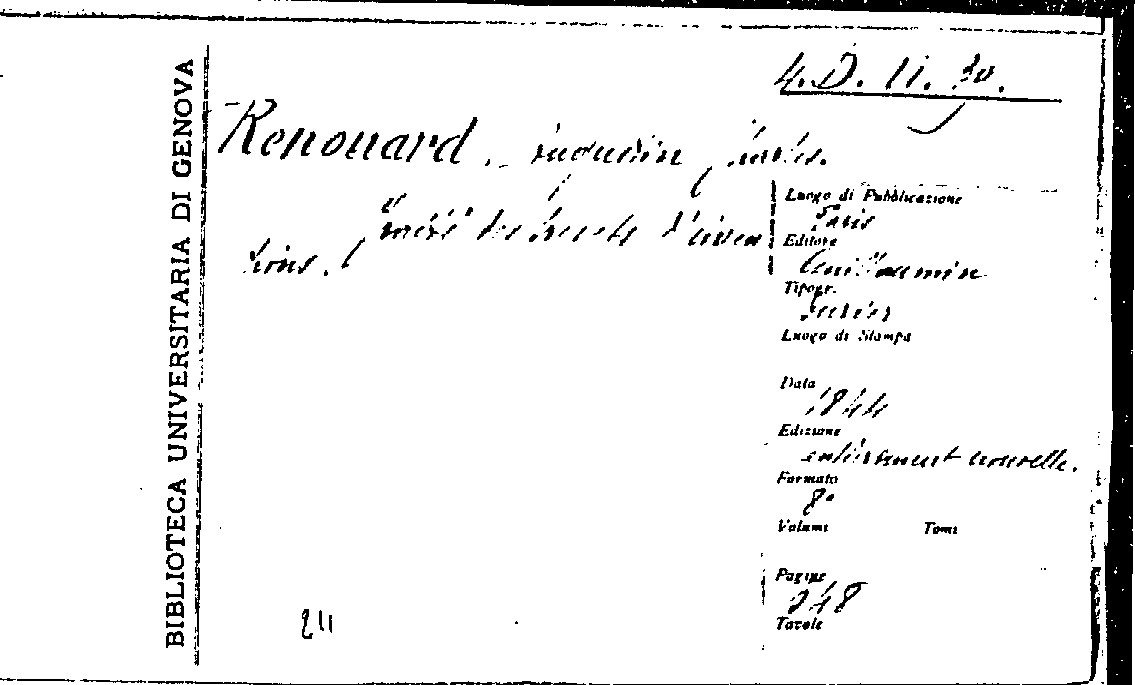 BIBLIOTECA UNIVERSITARIA DI GENOVA
4. D. 11. 30.
Renouard, Augustin Charles.
Traité des brevets d'inven
tions.
Luogo di Pubblicazione
Paris
Editore
Guillaumin
Tipogr.
Luogo di Stampa
Data
1844
Edizione
entièrement nouvelle.
Formato
8°
Volumi Tomi
Pagine
Tavole
211